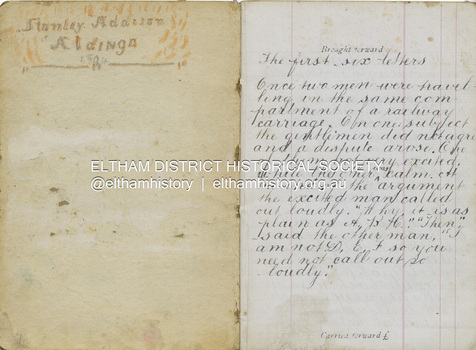 Stanley Addison
Aldinga
Brought forward
The first six letters
Once two men were travel
ling in the same com
partment of a railway
carriage. On one subject
the gentlemen did not agre
and a dispute arose. One
excited,
while the other calm. At
the argument
the excited man called
out loudly. "Why, it is as
plain as A, B, C." "Then",
said the other man, "I
am not D, E, F so you
need not call out so
loudly."
Carried forward £
ELTHAM DISTRICT HISTORICAL SOCIETY
@elthamhistory | elthamhistory.org.au